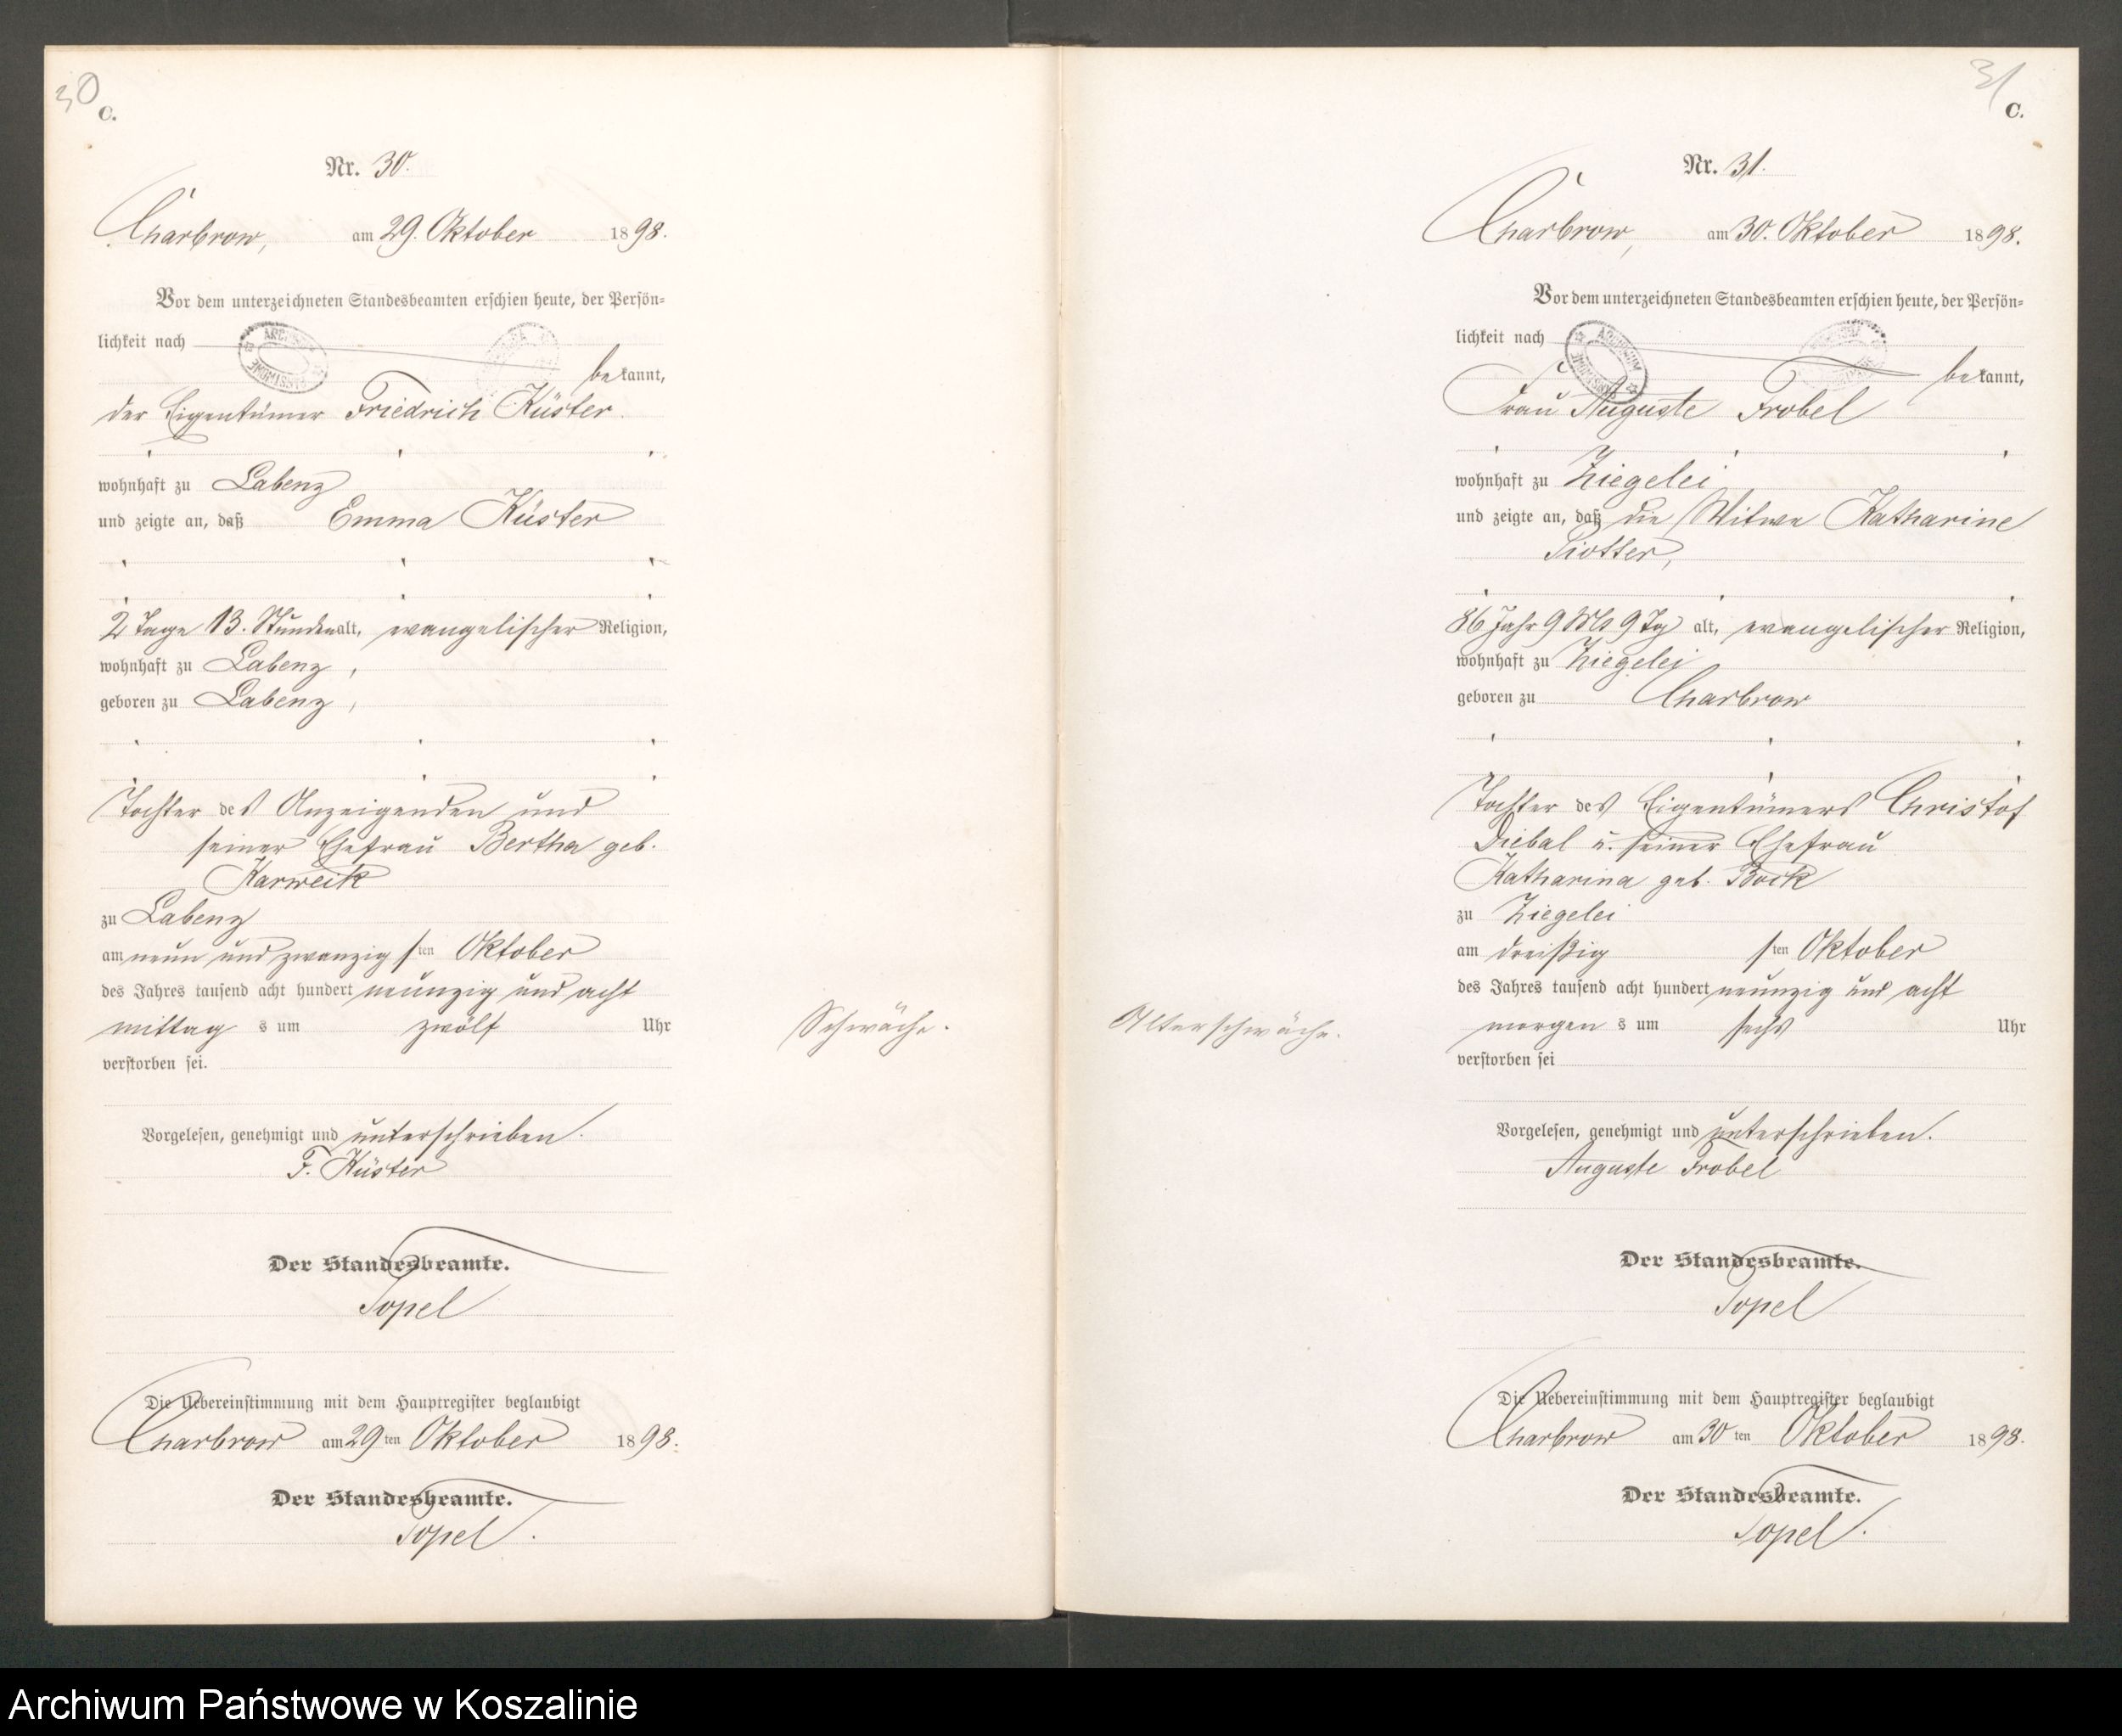 30
C.
Nr. 30.
Charbrow, am 29. Oktober 1898.
Vor dem unterzeichneten Standesbeamten erschien heute, der Persön-
lichkeit nach
bekannt,
der Eigentümer Friedrich Küster
wohnhaft zu Labenz
und zeigte an, daß Emma Küster
2 Tage 13. Stunden alt, evangelischer Religion,
wohnhaft zu Labenz,
geboren zu Labenz,
Tochter des Anzeigenden und
seiner Ehefrau Bertha geb.
Karweik
zu Labenz
am neun und zwanzigsten Oktober
des Jahres tausend acht hundert neunzig und acht
mittags um zwölf Uhr
verstorben sei.
Schwäche.
Vorgelesen, genehmigt und unterschrieben.
F. Küster
Der Standesbeamte.
Topel
Die Uebereinstimmung mit dem Hauptregister beglaubigt
Charbrow am 29ten Oktober 1898.
Der Standesbeamte.
Topel.
31
C.
Nr. 31.
Charbrow, am 30. Oktober 1898.
Vor dem unterzeichneten Standesbeamten erschien heute, der Persön-
lichkeit nach
ARCHIWUM
bekannt,
Frau Auguste Frobel
wohnhaft zu Ziegelei
und zeigte an, daß die Witwe Katharine
Piotter,
86 Jahr 9 Mts 9 Tg alt, evangelischer Religion,
wohnhaft zu Ziegelei
geboren zu Charbrow
Tochter des Eigentümers Christof
Diebal u. seiner Ehefrau
Katharina geb. Bock
zu Ziegelei
am dreißigsten Oktober
des Jahres tausend acht hundert neunzig und acht
morgens um sechs Uhr
verstorben sei
Alterschwäche.
Vorgelesen, genehmigt und unterschrieben.
Auguste Frobel
Der Standesbeamte.
Topel
Die Uebereinstimmung mit dem Hauptregister beglaubigt
Charbrow am 30ten Oktober 1898.
Der Standesbeamte.
Topel.
Archiwum Państwowe w Koszalinie